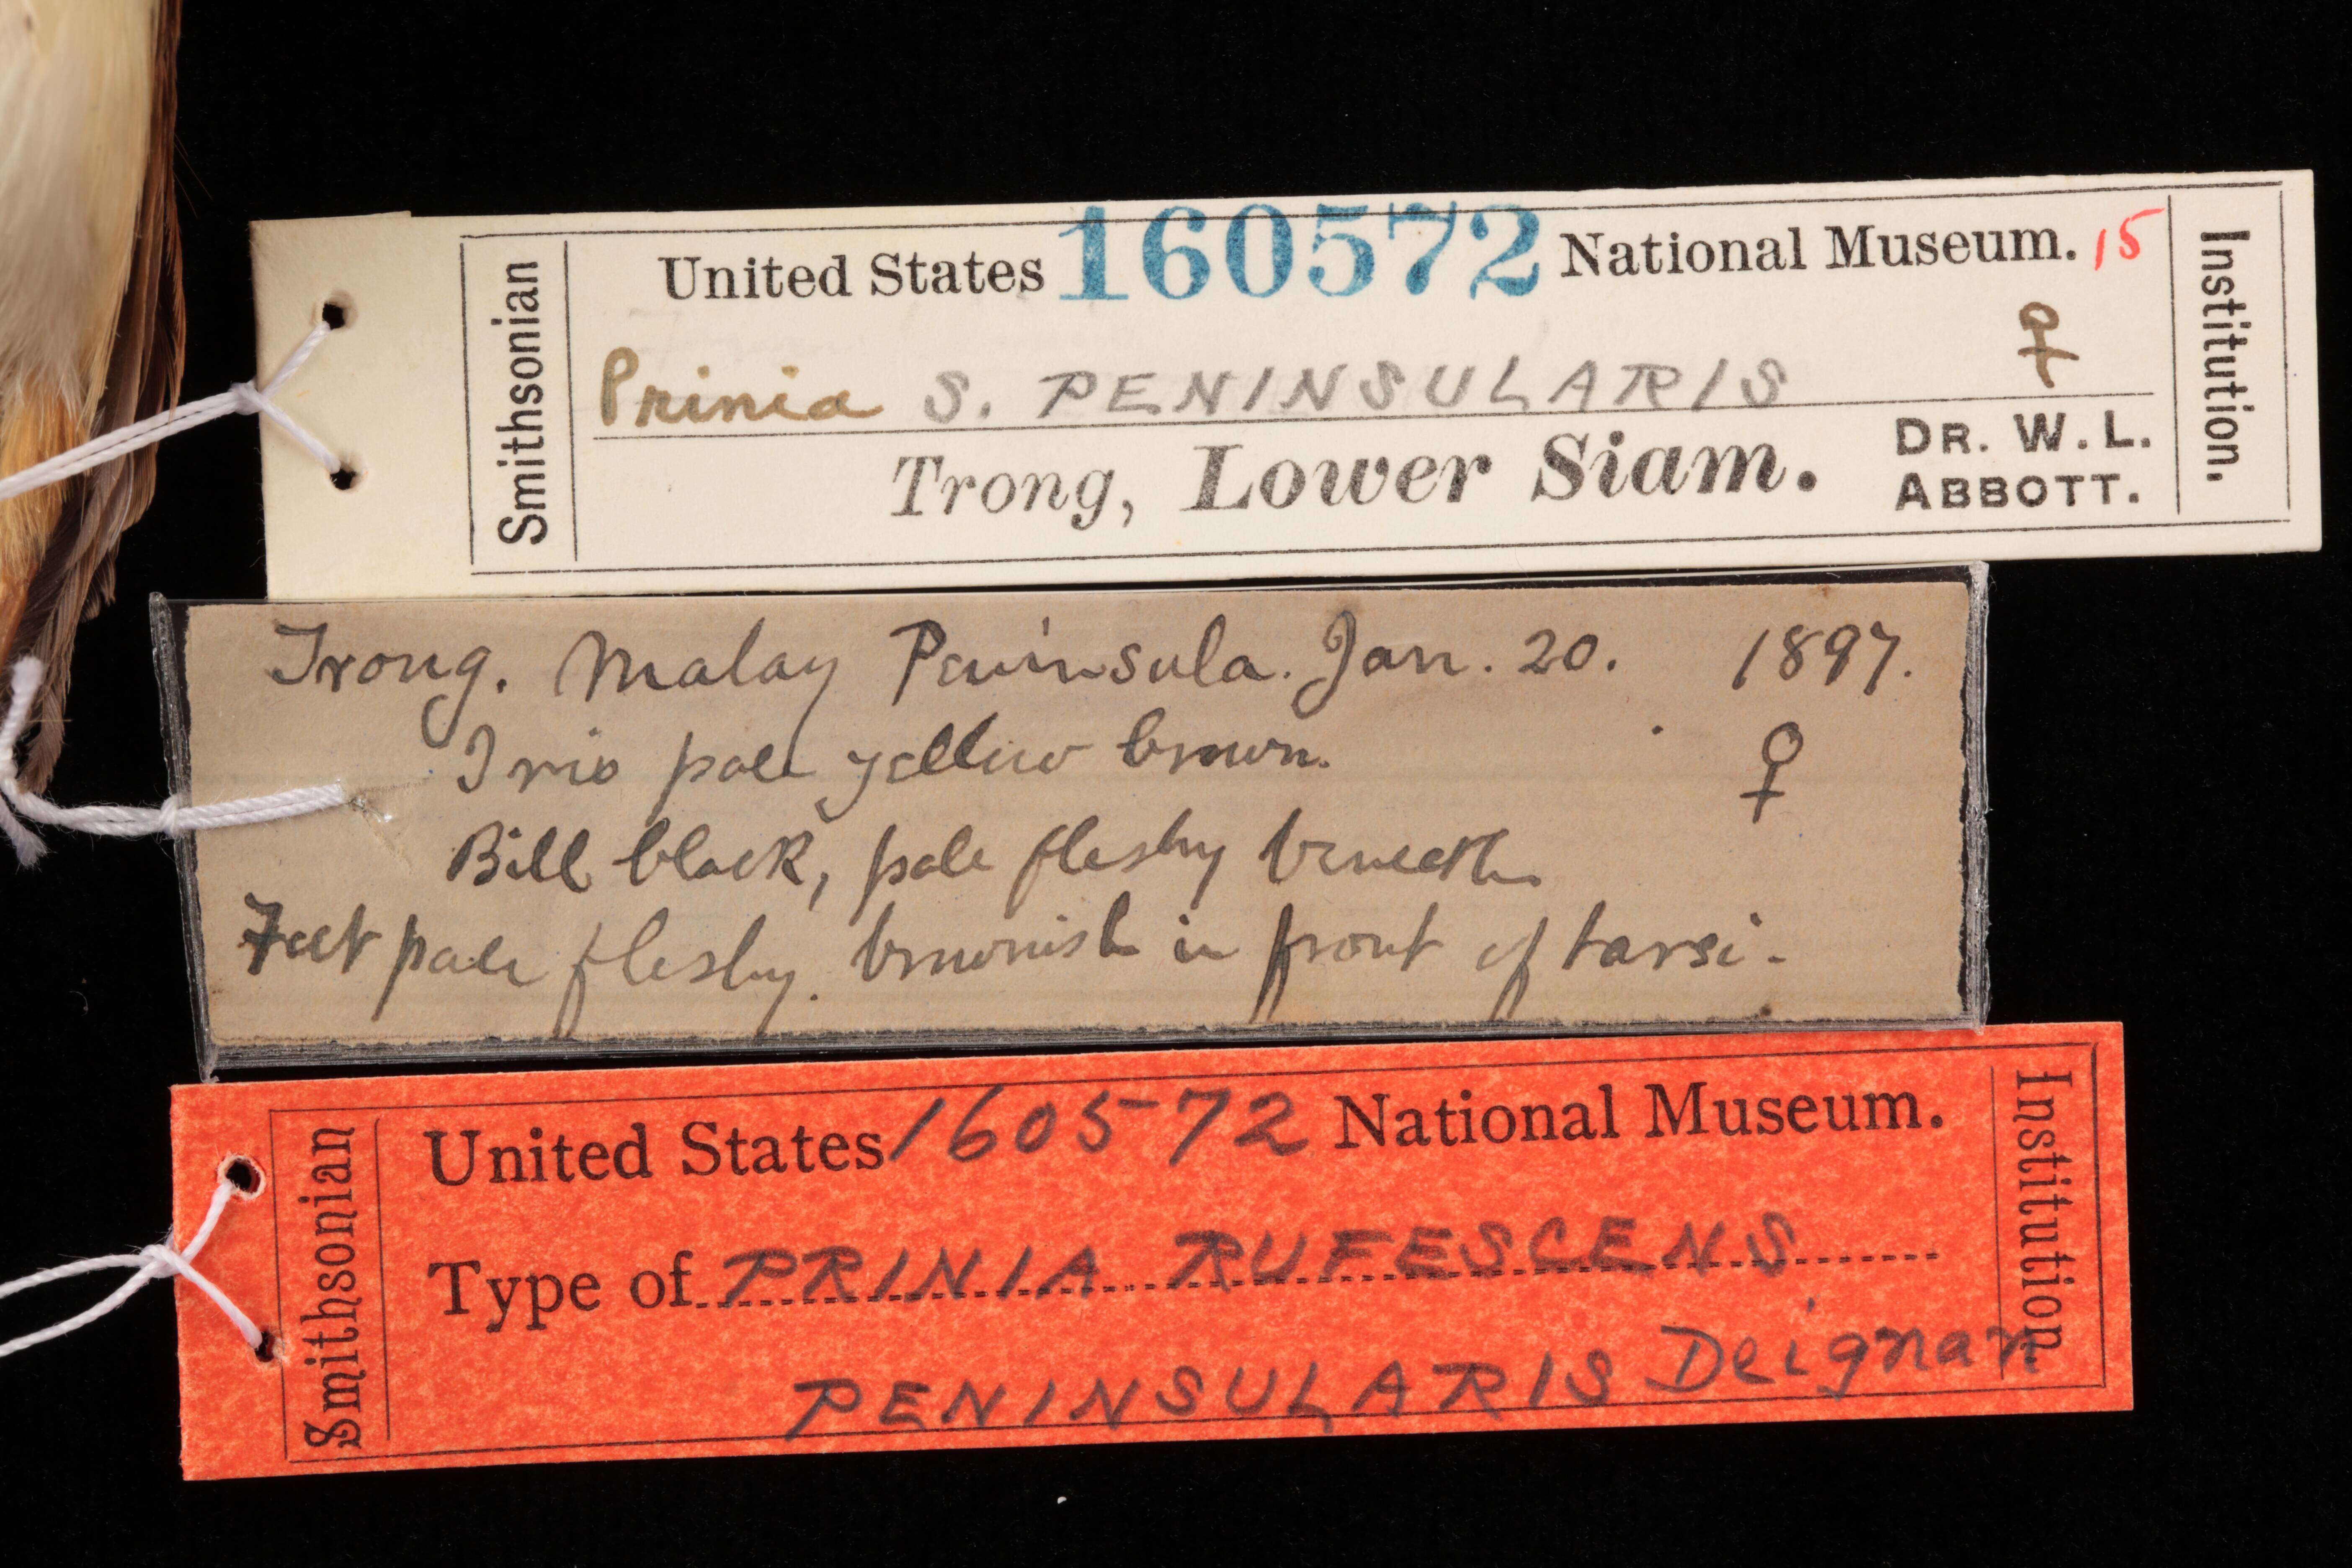 Smithsonian
United States 160572 National Museum. 15
♀
Prinia S. PENINSULARIS
Trong, Lower Siam.
DR. W. L.
ABBOTT.
Institution.
Trong. Malay Peninsula. Jan. 20. 1897.
Iris pale yellow brown. ♀
Bill black, pale fleshy beneath
Feet pale fleshy. brownish in front of tarsi.
Smithsonian
United States 160572 National Museum.
Type of PRINIA RUFESCENS
PENINSULARIS Deignan
Institution.